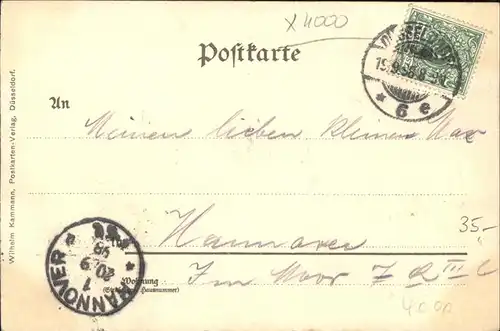 X 4000
Postkarte
DÜSSELDORF
* 6 e
An
Meinen lieben kleinen Max
35-
Hannover
Wohnung
(Straße und Hausnummer)
Im Moor 7 III
4000
HANNOVER
20 9
1
Wilhelm Kammann, Postkarten-Verlag, Düsseldorf.